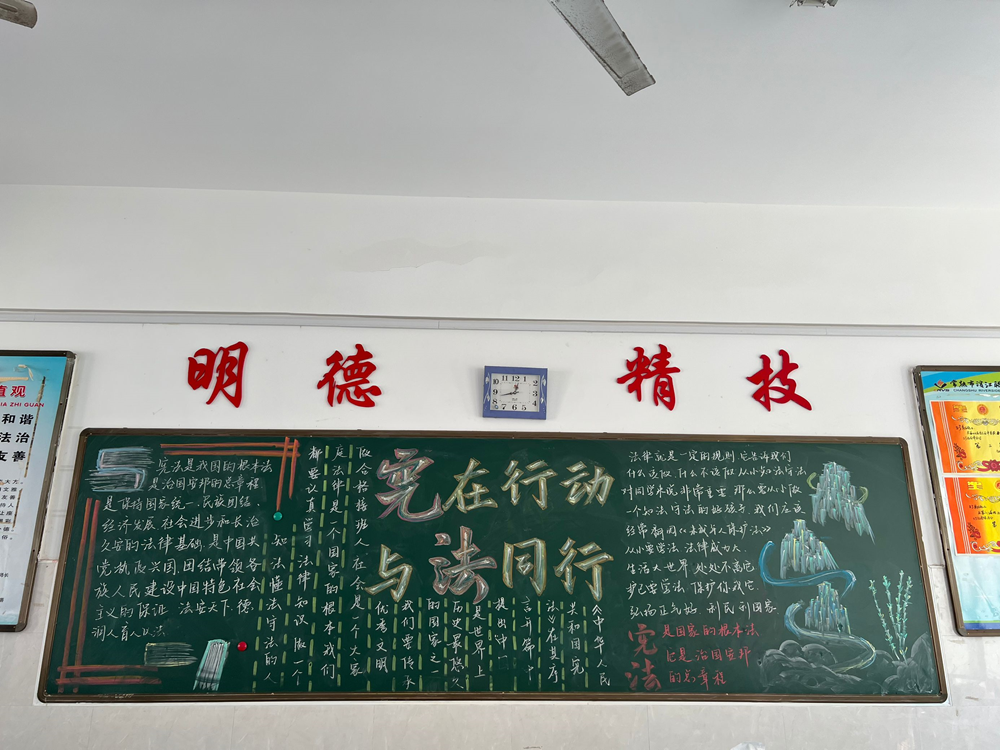 明 德 精 技
值观
JIA ZHI GUAN
和谐
法治
友善
常熟市滨江
CHANGSHU RIVERSIDE
12
11
10
9
8
7
6
5
4
3
2
1
宪法是我国的根本法
是治国安邦的总章程
是保持国家统一.民族团结
经济发展 社会进步和长治
久安的法律基础.是中国共
党执政兴国 团结带领各
族人民建设中国特色社会
主义的保证 法安天下.德
润人育人以法
做合格接班人社会是一个大家
庭法律是一个国家的根本我们
都要认真学习法律知识做一个
知法懂法守法的人
宪在行动
与法同行
《中华人民
共和国宪
法》在其序
言开篇中
提出中
是世界上
历史最悠久
的国家之一
我们要传承
优秀文明
法律就是一定的规则 它告诉我们
什么该做.什么不该做 从小知法守法
对同学来说非常重要 那么要从小做
一个知法守法的好孩子.我们应该
经常翻阅《未成济人保护法》
从小要学法 法律威力大.
生活大世界 处处不离它
护己要学法 保护你我它.
弘扬正气好 利民利国家
宪法
是国家的根本法
它是治国安邦
的总章程